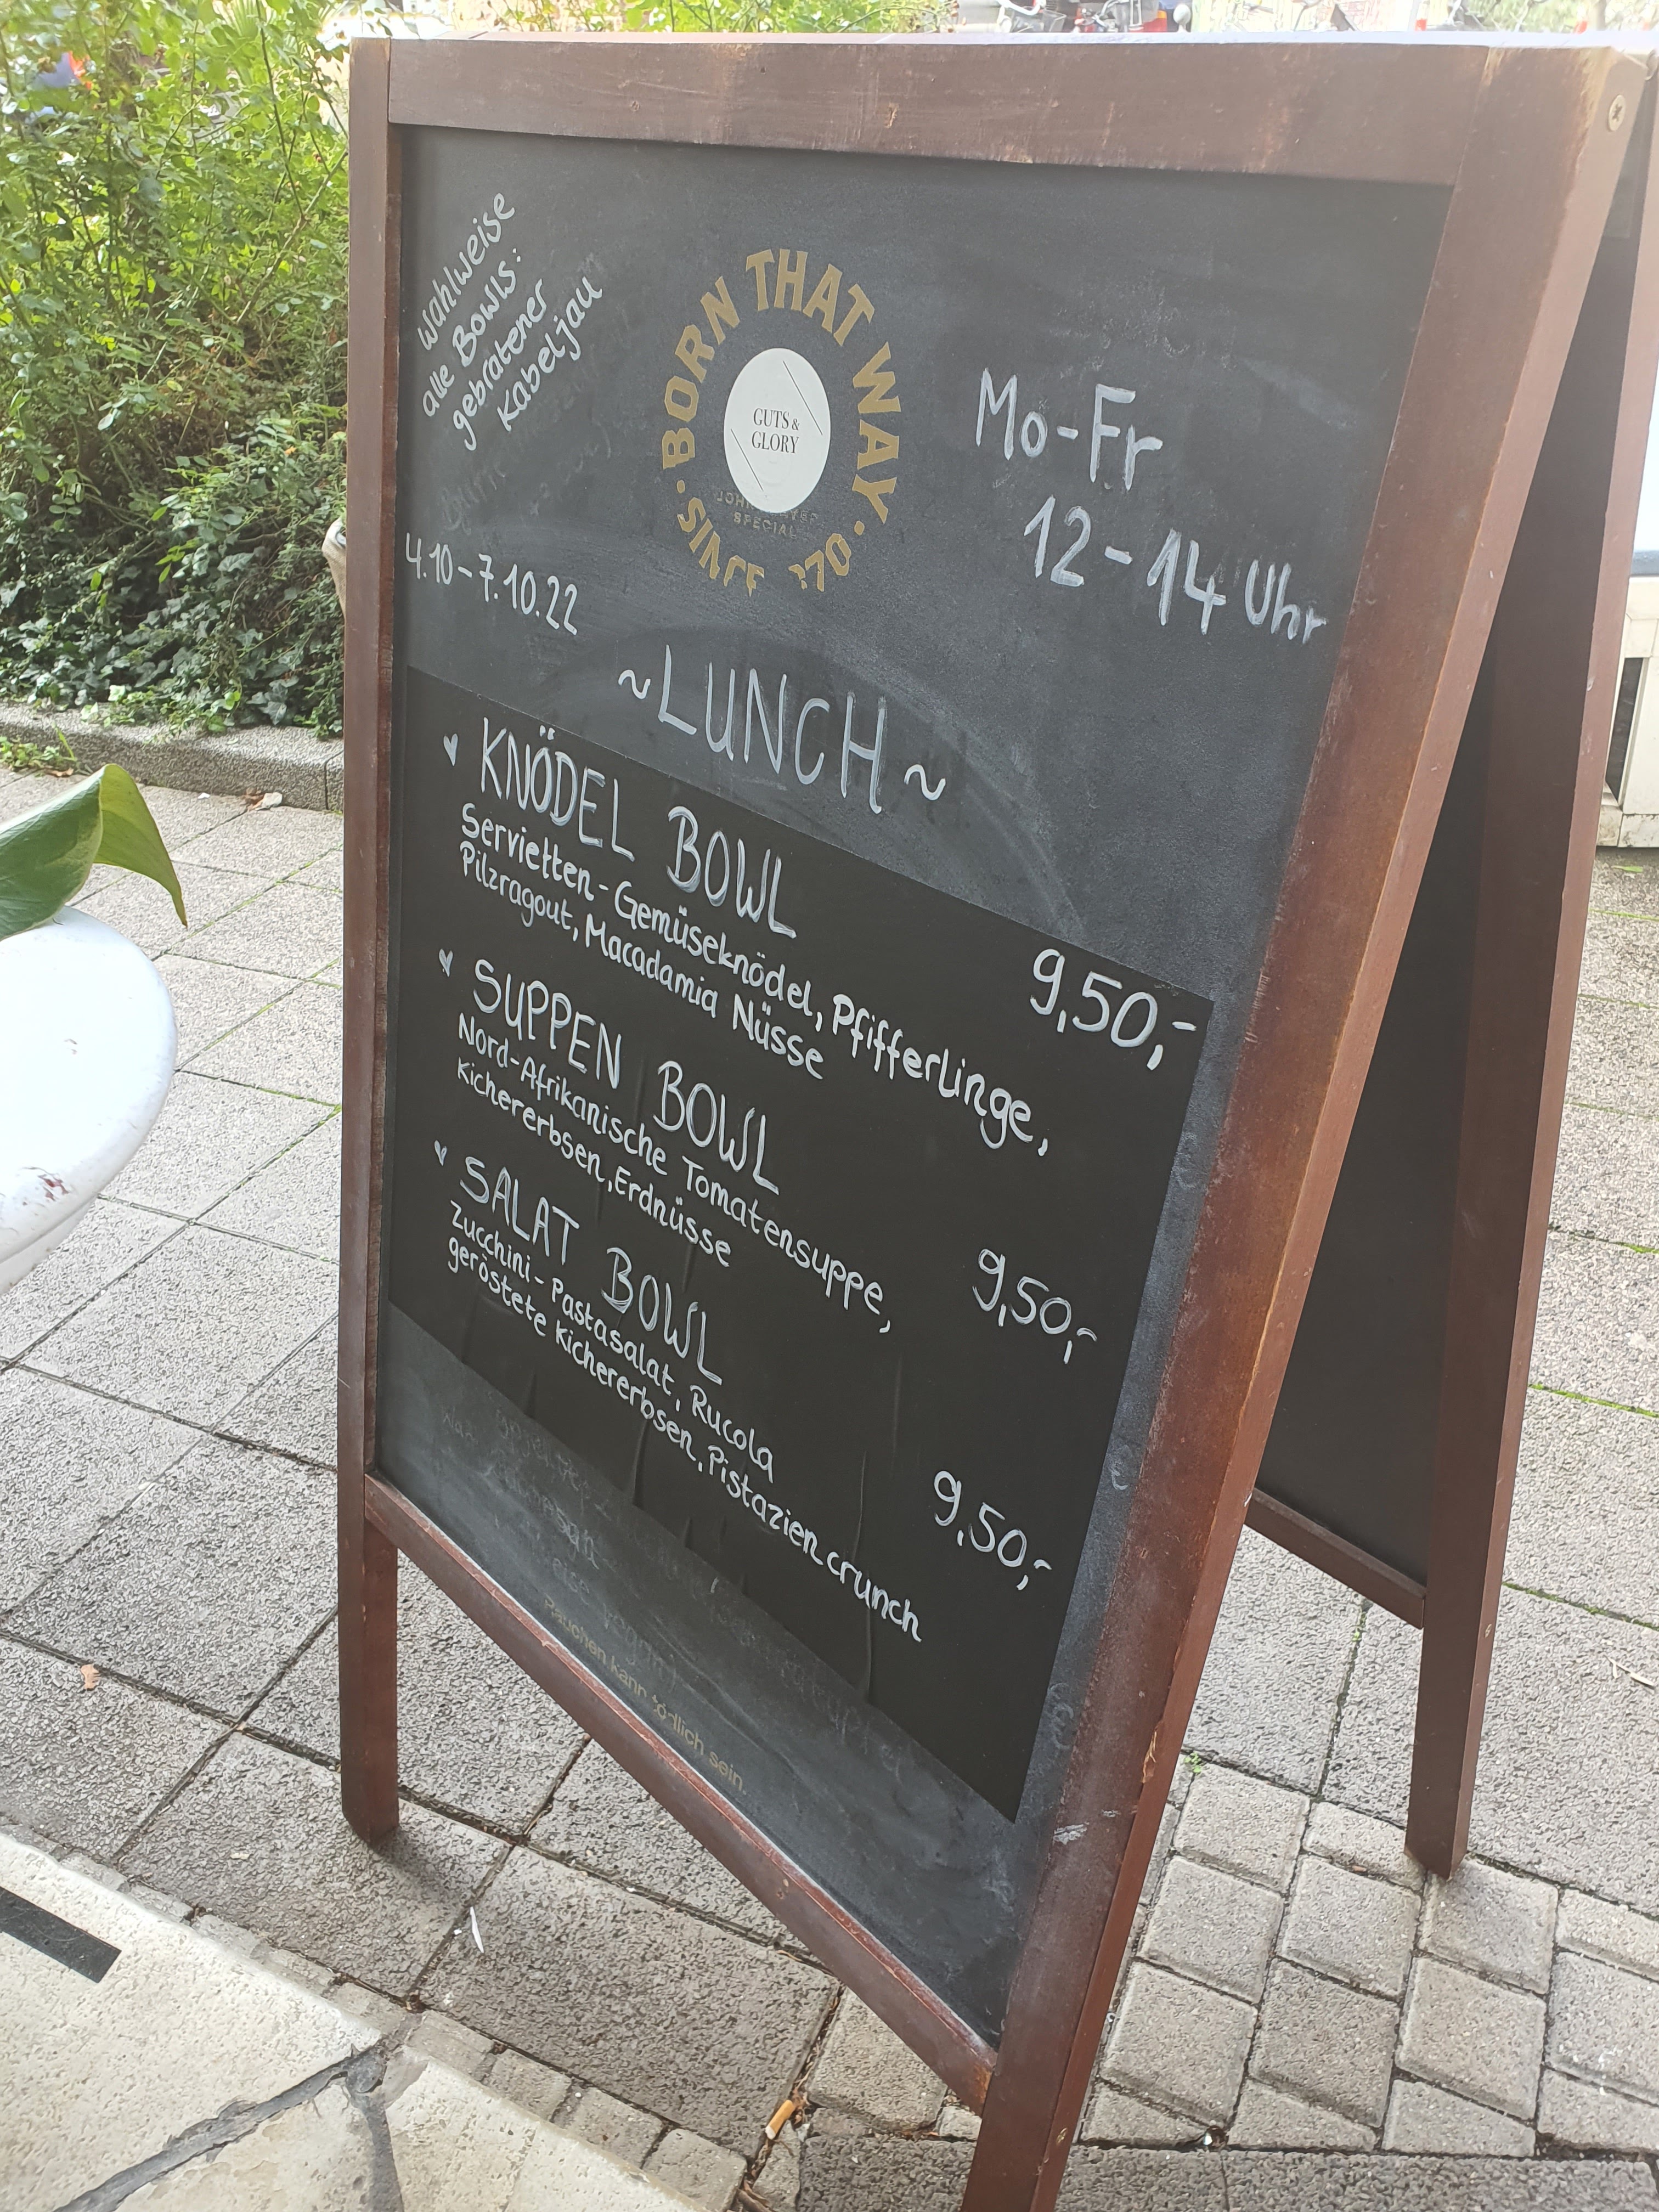 wahlweise
alle Bowls:
gebratener
Kabeljau
BORN THAT WAY
GUTS &
GLORY
SPECIAL
Mo-Fr
12-14 Uhr
4.10-7.10.22
~LUNCH~
KNÖDEL BOWL 9,50,-
Servietten-Gemüseknödel, Pfifferlinge,
Pilzragout, Macadamia Nüsse
SUPPEN BOWL 9,50,-
Nord-Afrikanische Tomatensuppe,
Kichererbsen, Erdnüsse
SALAT BOWL 9,50,-
Zucchini-Pastasalat, Rucola
geröstete Kichererbsen, Pistazien crunch
Rauchen kann tödlich sein.